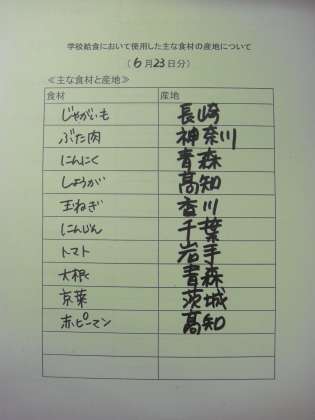 学校給食において使用した主な食材の産地について
(6月23日分)
≪主な食材と産地≫
食材 産地
じゃがいも 長崎
ぶた肉 神奈川
にんにく 青森
しょうが 高知
玉ねぎ 香川
にんじん 千葉
トマト 岩手
大根 青森
京菜 茨城
赤ピーマン 高知